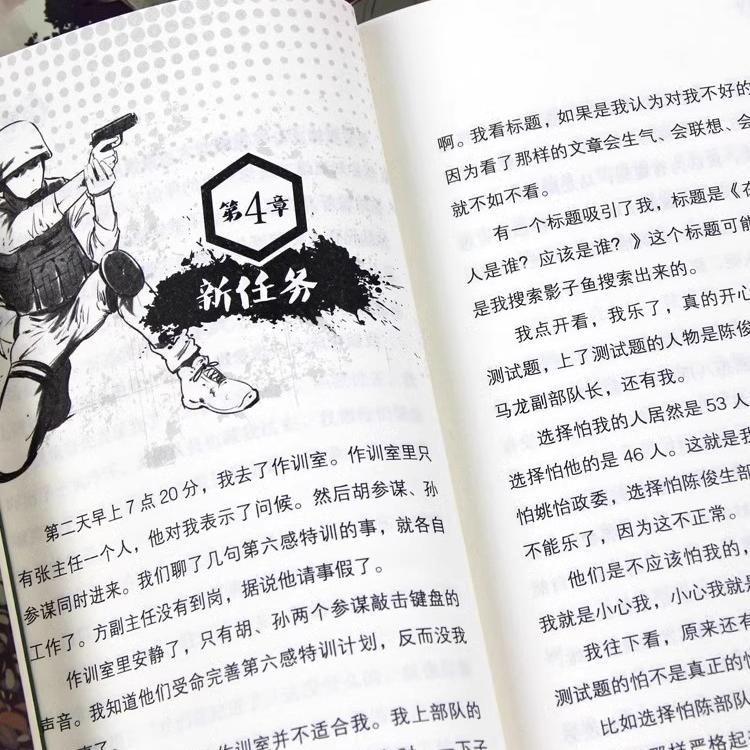 第4章
新任务
第二天早上7点20分，我去了作训室。作训室里只
有张主任一个人，他对我表示了问候。然后胡参谋、孙
参谋同时进来。我们聊了几句第六感特训的事，就各自
工作了。方副主任没有到岗，据说他请事假了。
作训室里安静了，只有胡、孙两个参谋敲击键盘的
声音。我知道他们受命完善第六感特训计划，反而没我
作训室并不适合我。我上部队的
一下子
啊。我看标题，如果是我认为对我不好的
因为看了那样的文章会生气、会联想、会
就不如不看。
有一个标题吸引了我，标题是《在
人是谁？应该是谁？》这个标题可能
是我搜索影子鱼搜索出来的。
我点开看，我乐了，真的开心
测试题，上了测试题的人物是陈俊
马龙副部队长，还有我。
选择怕我的人居然是53人
选择怕他的是46人。这就是我
怕姚怡政委，选择怕陈俊生部
不能乐了，因为这不正常。
他们是不应该怕我的，
我就是小心我，小心我就
我往下看，原来还有
测试题的怕不是真正的怕
比如选择怕陈部队
严格起